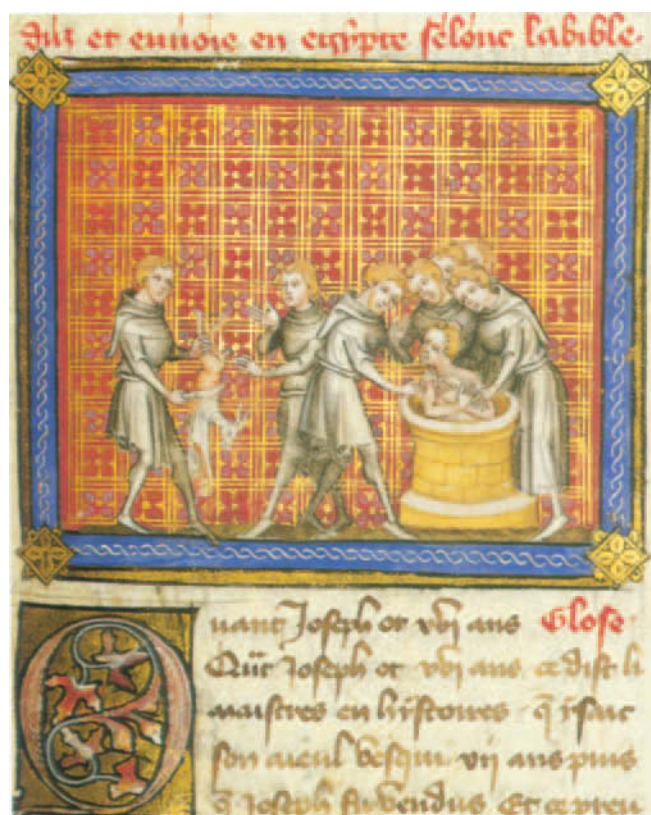 et enuoie en egypte selonc la bible.
Quant Joseph ot xvj ans Glose
Joseph ot xvj ans ce dist li
maistres en hystoires q ysaac
son aieul vesqui xij ans puis
q Joseph fu vendus Et ce